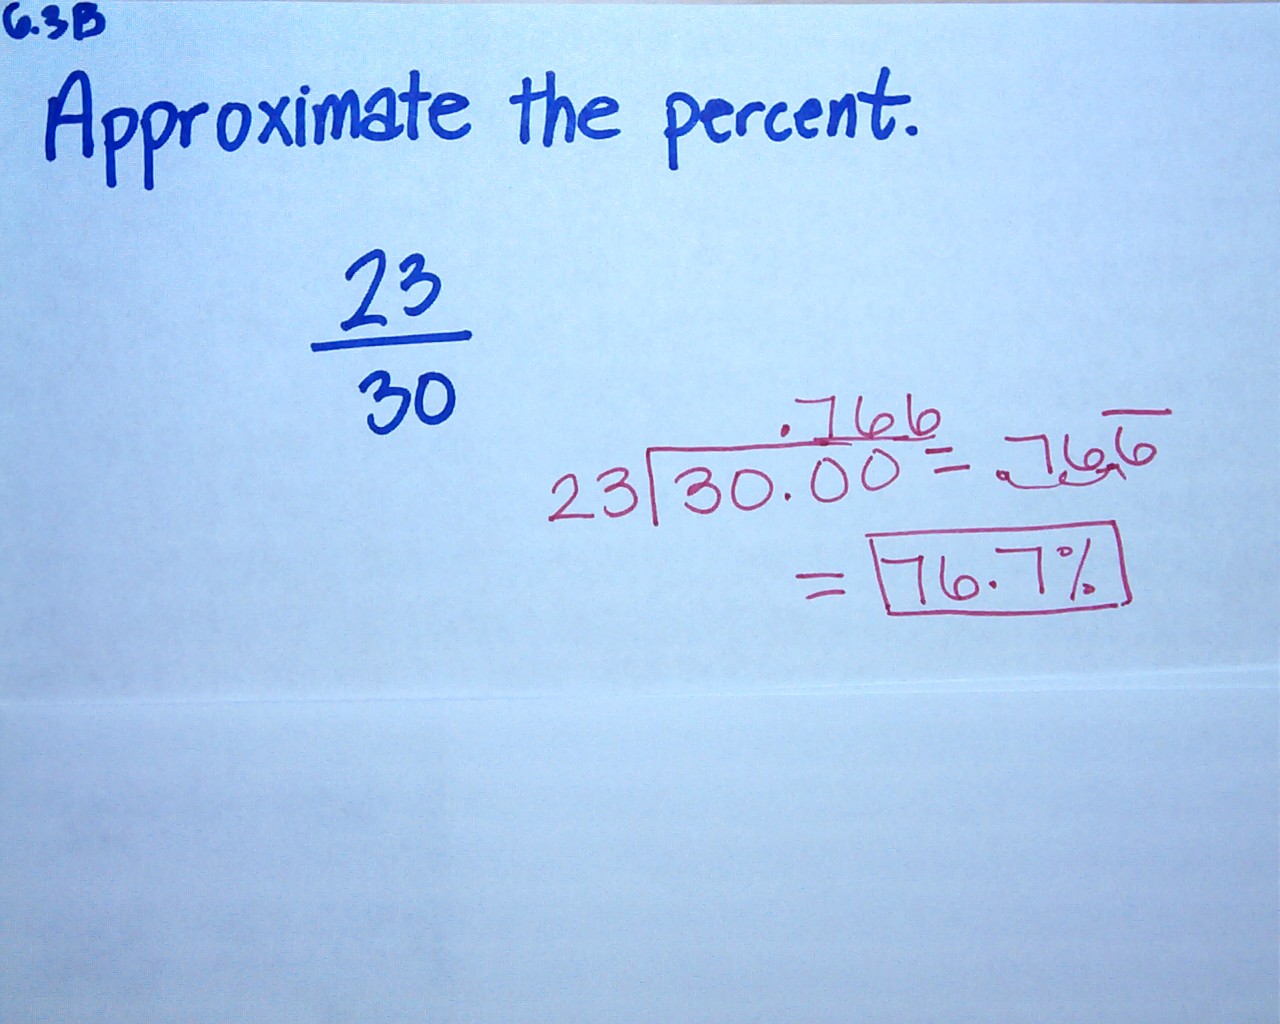 6.3B
Approximate the percent.
23
30
.766
23 30.00 = .766
= 76.7%